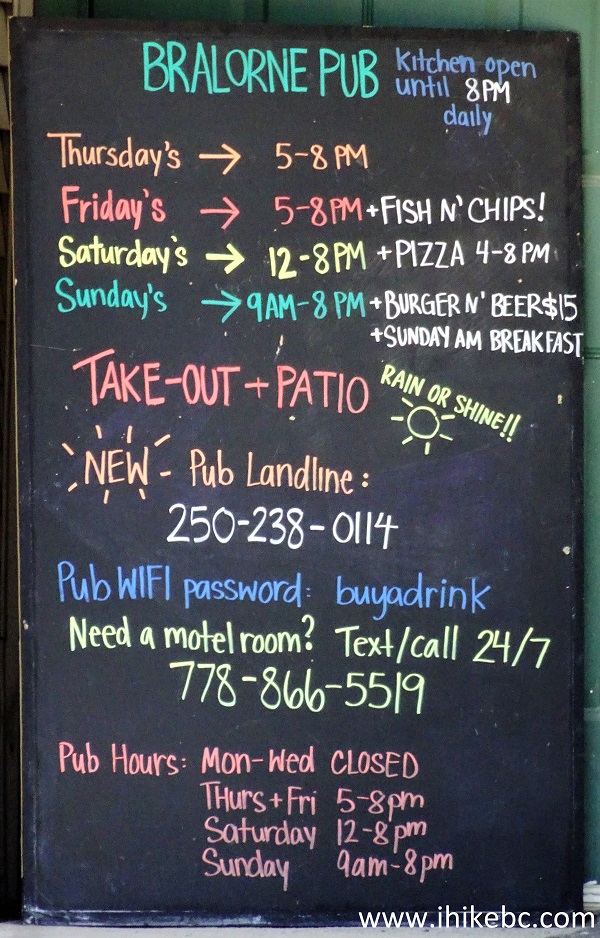 BRALORNE PUB
Kitchen open
until 8PM
daily
Thursday's → 5-8 PM
Friday's → 5-8PM +FISH N' CHIPS!
Saturday's → 12-8PM +PIZZA 4-8 PM
Sunday's → 9AM-8 PM +BURGER N' BEER $15
+SUNDAY AM BREAKFAST
TAKE-OUT + PATIO
RAIN OR SHINE!!
NEW - Pub Landline:
250-238-0114
Pub WIFI password: buyadrink
Need a motel room? Text/call 24/7
778-866-5519
Pub Hours: Mon-Wed CLOSED
THurs+Fri 5-8pm
Saturday 12-8pm
Sunday 9am-8pm
www.ihikebc.com